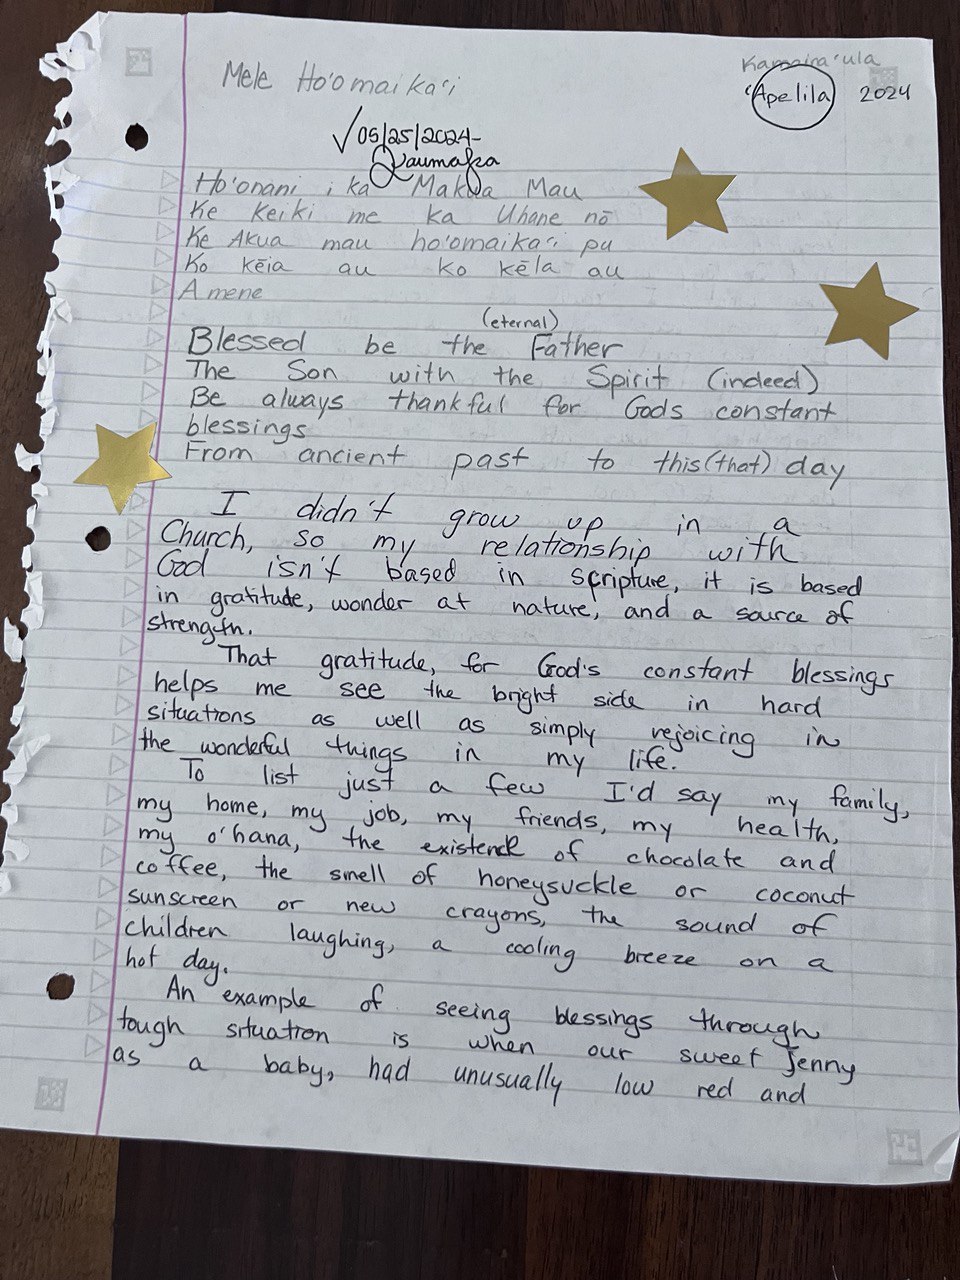 Mele Ho'omaika'i
Kamaira'ula
'Apelila 2024
√05/25/2024-
Kaumaka
Ho'onani i ka Makua Mau
Ke Keiki me ka Uhane nō
Ke Akua mau ho'omaika'i pu
Ko kēia au ko kēla au
Amene
(eternal)
Blessed be the Father
The Son with the Spirit (indeed)
Be always thankful for Gods constant
blessings
From ancient past to this (that) day
I didn't grow up in a
Church, so my relationship with
God isn't based in scripture, it is based
in gratitude, wonder at nature, and a source of
strength.
That gratitude, for God's constant blessings
helps me see the bright side in hard
situations as well as simply rejoicing in
the wonderful things in my life.
To list just a few I'd say my family,
my home, my job, my friends, my health,
my o'hana, the existence of chocolate and
coffee, the smell of honeysuckle or coconut
sunscreen or new crayons, the sound of
children laughing, a cooling breeze on a
hot day.
An example of seeing blessings through
tough situation is when our sweet Jenny
as a baby, had unusually low red and